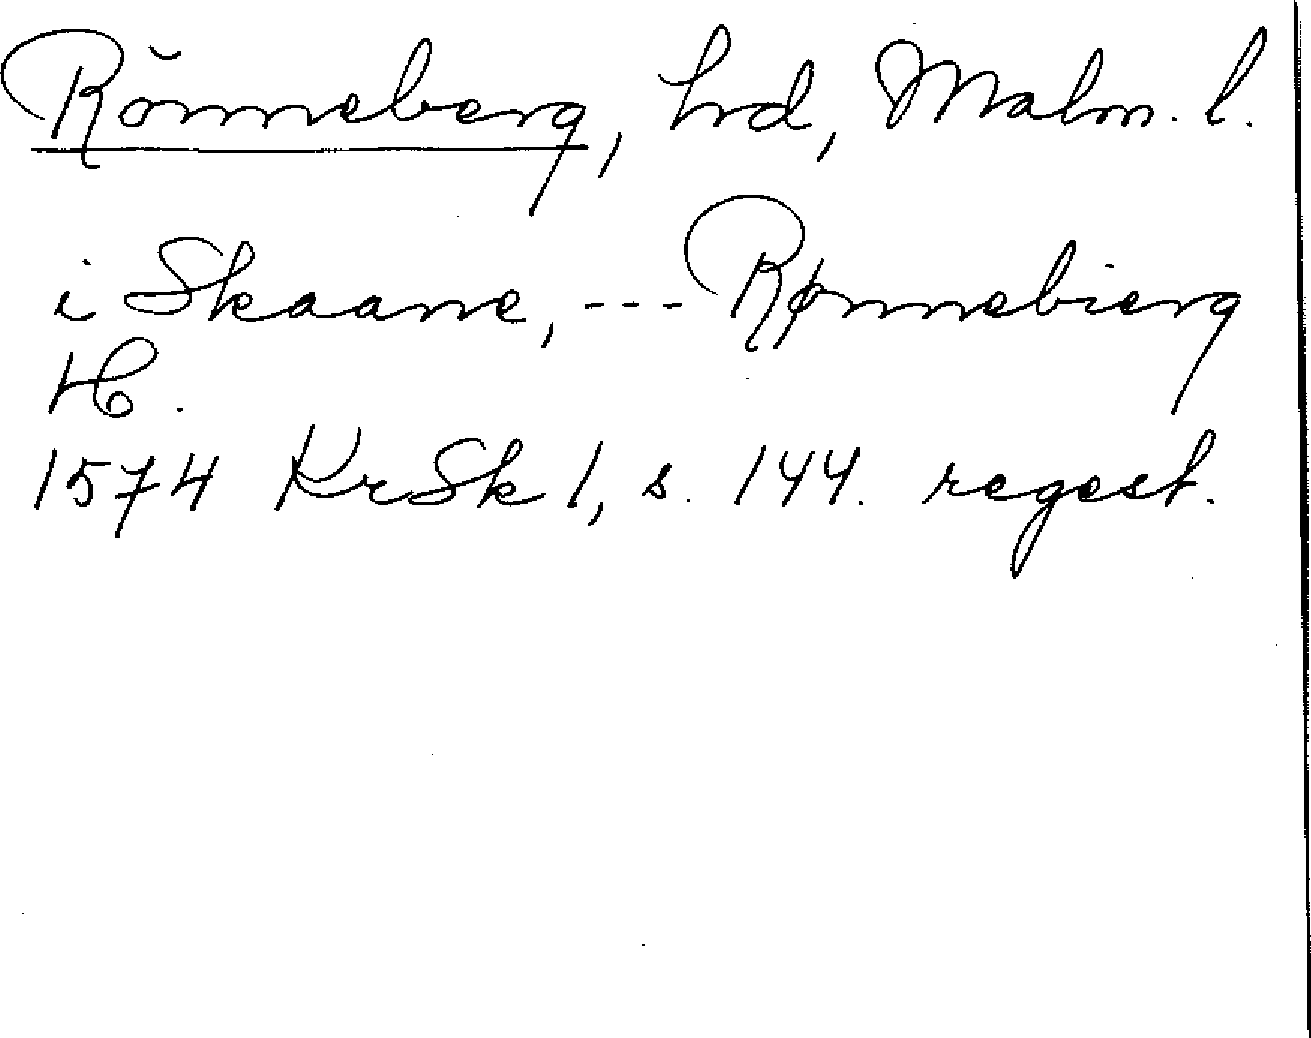 Rönneberg, hrd, Malm. l.
i Skaane, --- Rønnebierg
H.
1574 KrSk 1, s. 144. regest.